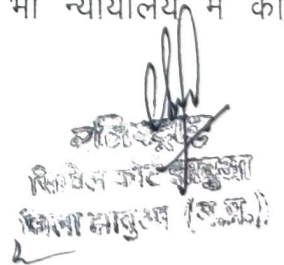 भी न्यायालय में को
सिविल कोर्ट झाबुआ
जिला झाबुआ (म.प्र.)